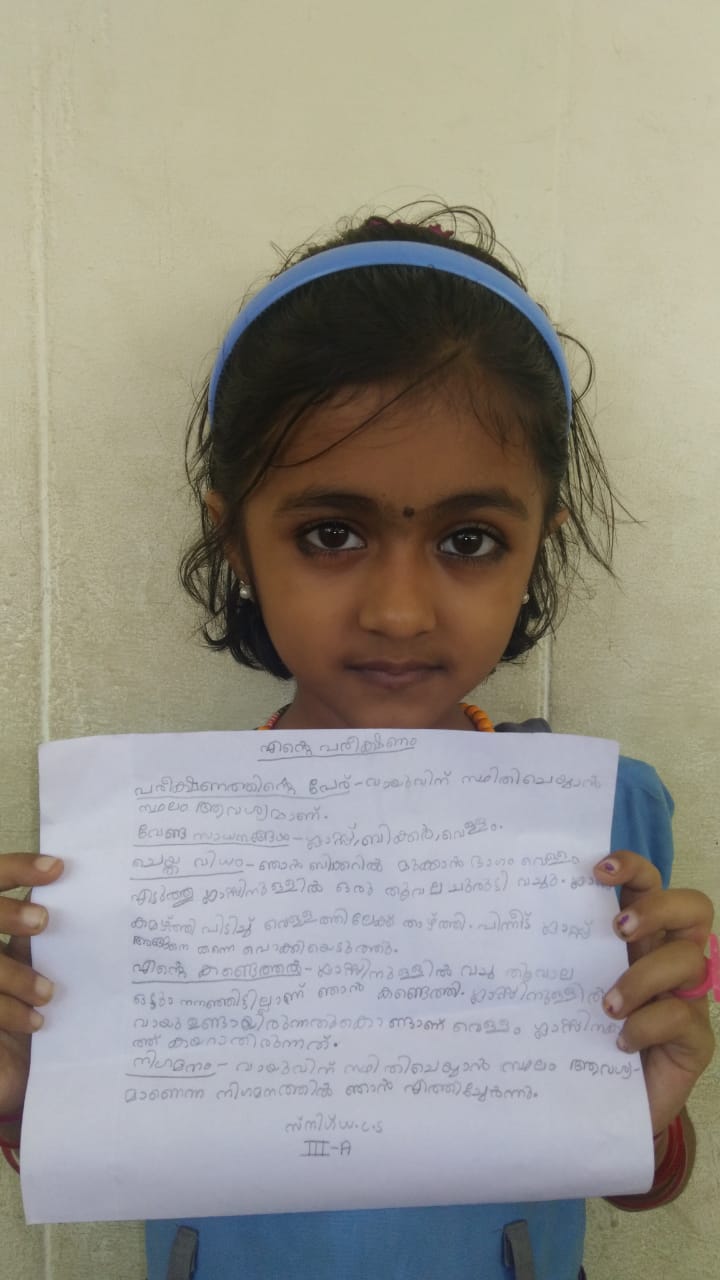 എന്റെ പരീക്ഷണം
പരീക്ഷണത്തിന്റെ പേര് - വായുവിന് സ്ഥിതിചെയ്യാൻ
സ്ഥലം ആവശ്യമാണ്.
വേണ്ട സാധനങ്ങൾ - ഗ്ലാസ്സ്, ബീക്കർ, വെള്ളം.
ചെയ്ത വിധം - ഞാൻ ബീക്കറിൽ മുക്കാൻ ഭാഗം വെള്ളം
എടുത്തു ഗ്ലാസിനുള്ളിൽ ഒരു തൂവല ചുരുട്ടി വച്ചു.
കമഴ്ത്തി പിടിച്ച് വെള്ളത്തിലേക്കു താഴ്ത്തി. പിന്നീട് ഗ്ലാസ്സ്
അങ്ങനെ തന്നെ പൊക്കിയെടുത്തു.
എന്റെ കണ്ടെത്തൽ - ഗ്ലാസിനുള്ളിൽ വച്ച തൂവാല
ഒട്ടും നനഞ്ഞിട്ടില്ലാണ് ഞാൻ കണ്ടെത്തി. ഗ്ലാസിനുള്ളിൽ
വായു ഉണ്ടായിരുന്നതുകൊണ്ടാണ് വെള്ളം
ത്ത് കയറാതിരുന്നത്.
നിഗമനം - വായുവിന് സ്ഥിതിചെയ്യാൻ സ്ഥലം ആവശ്യ-
മാണെന്ന നിഗമനത്തിൽ ഞാൻ എത്തിച്ചേർന്നു.
സ്നിഗ്ധ. c. s
III-A